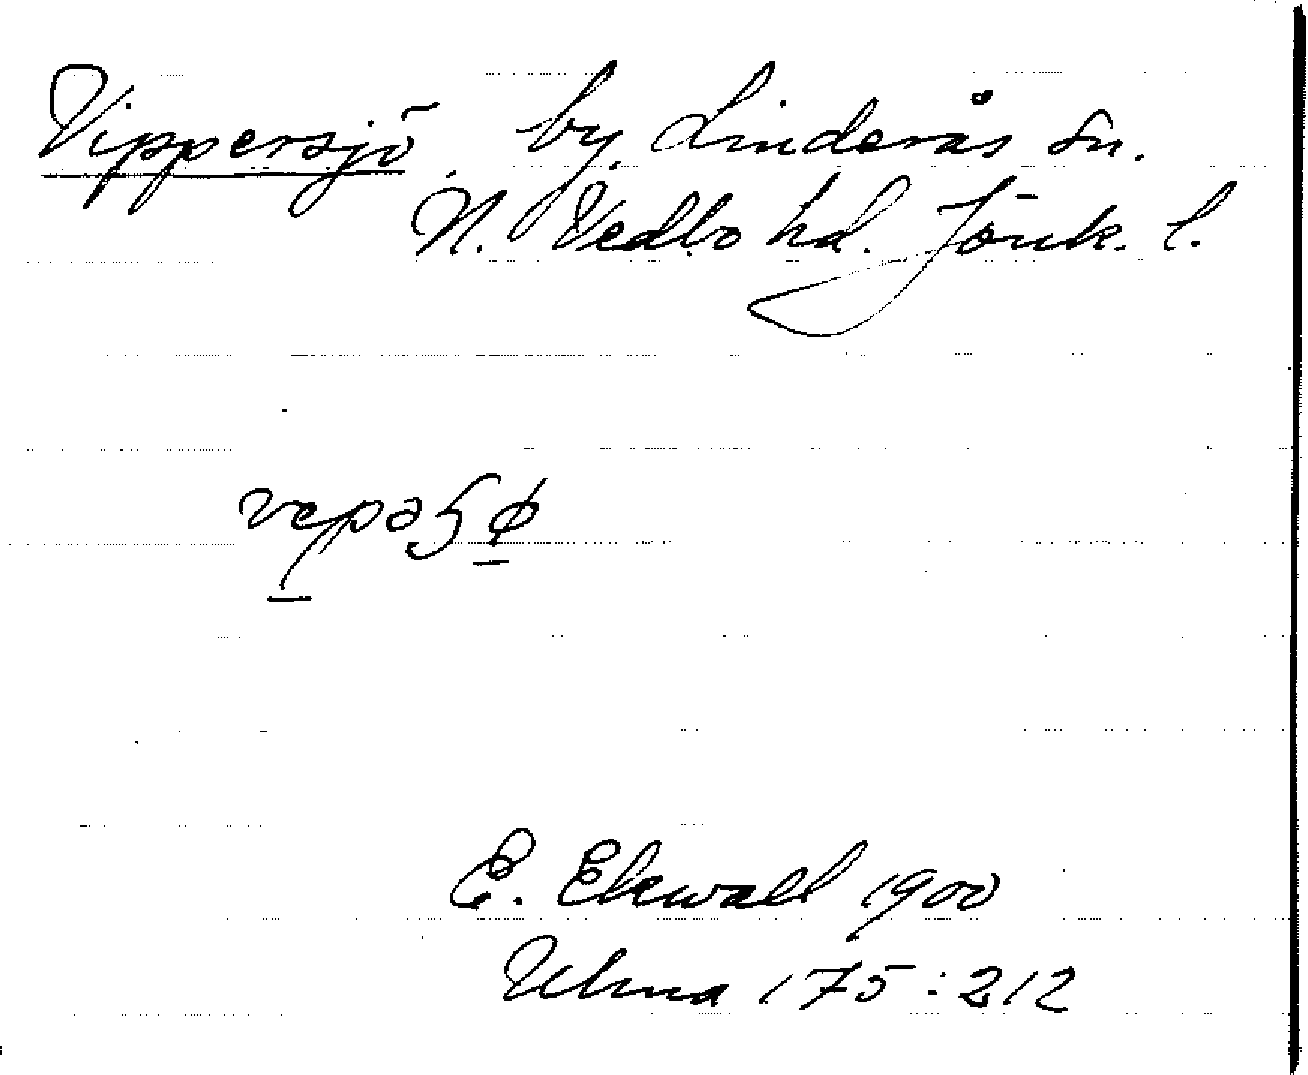 Vippersjö by, Linderås sn.
N. Vedbo hd. Jönk. l.
E. Ekwall 1900
Ulma 175:212